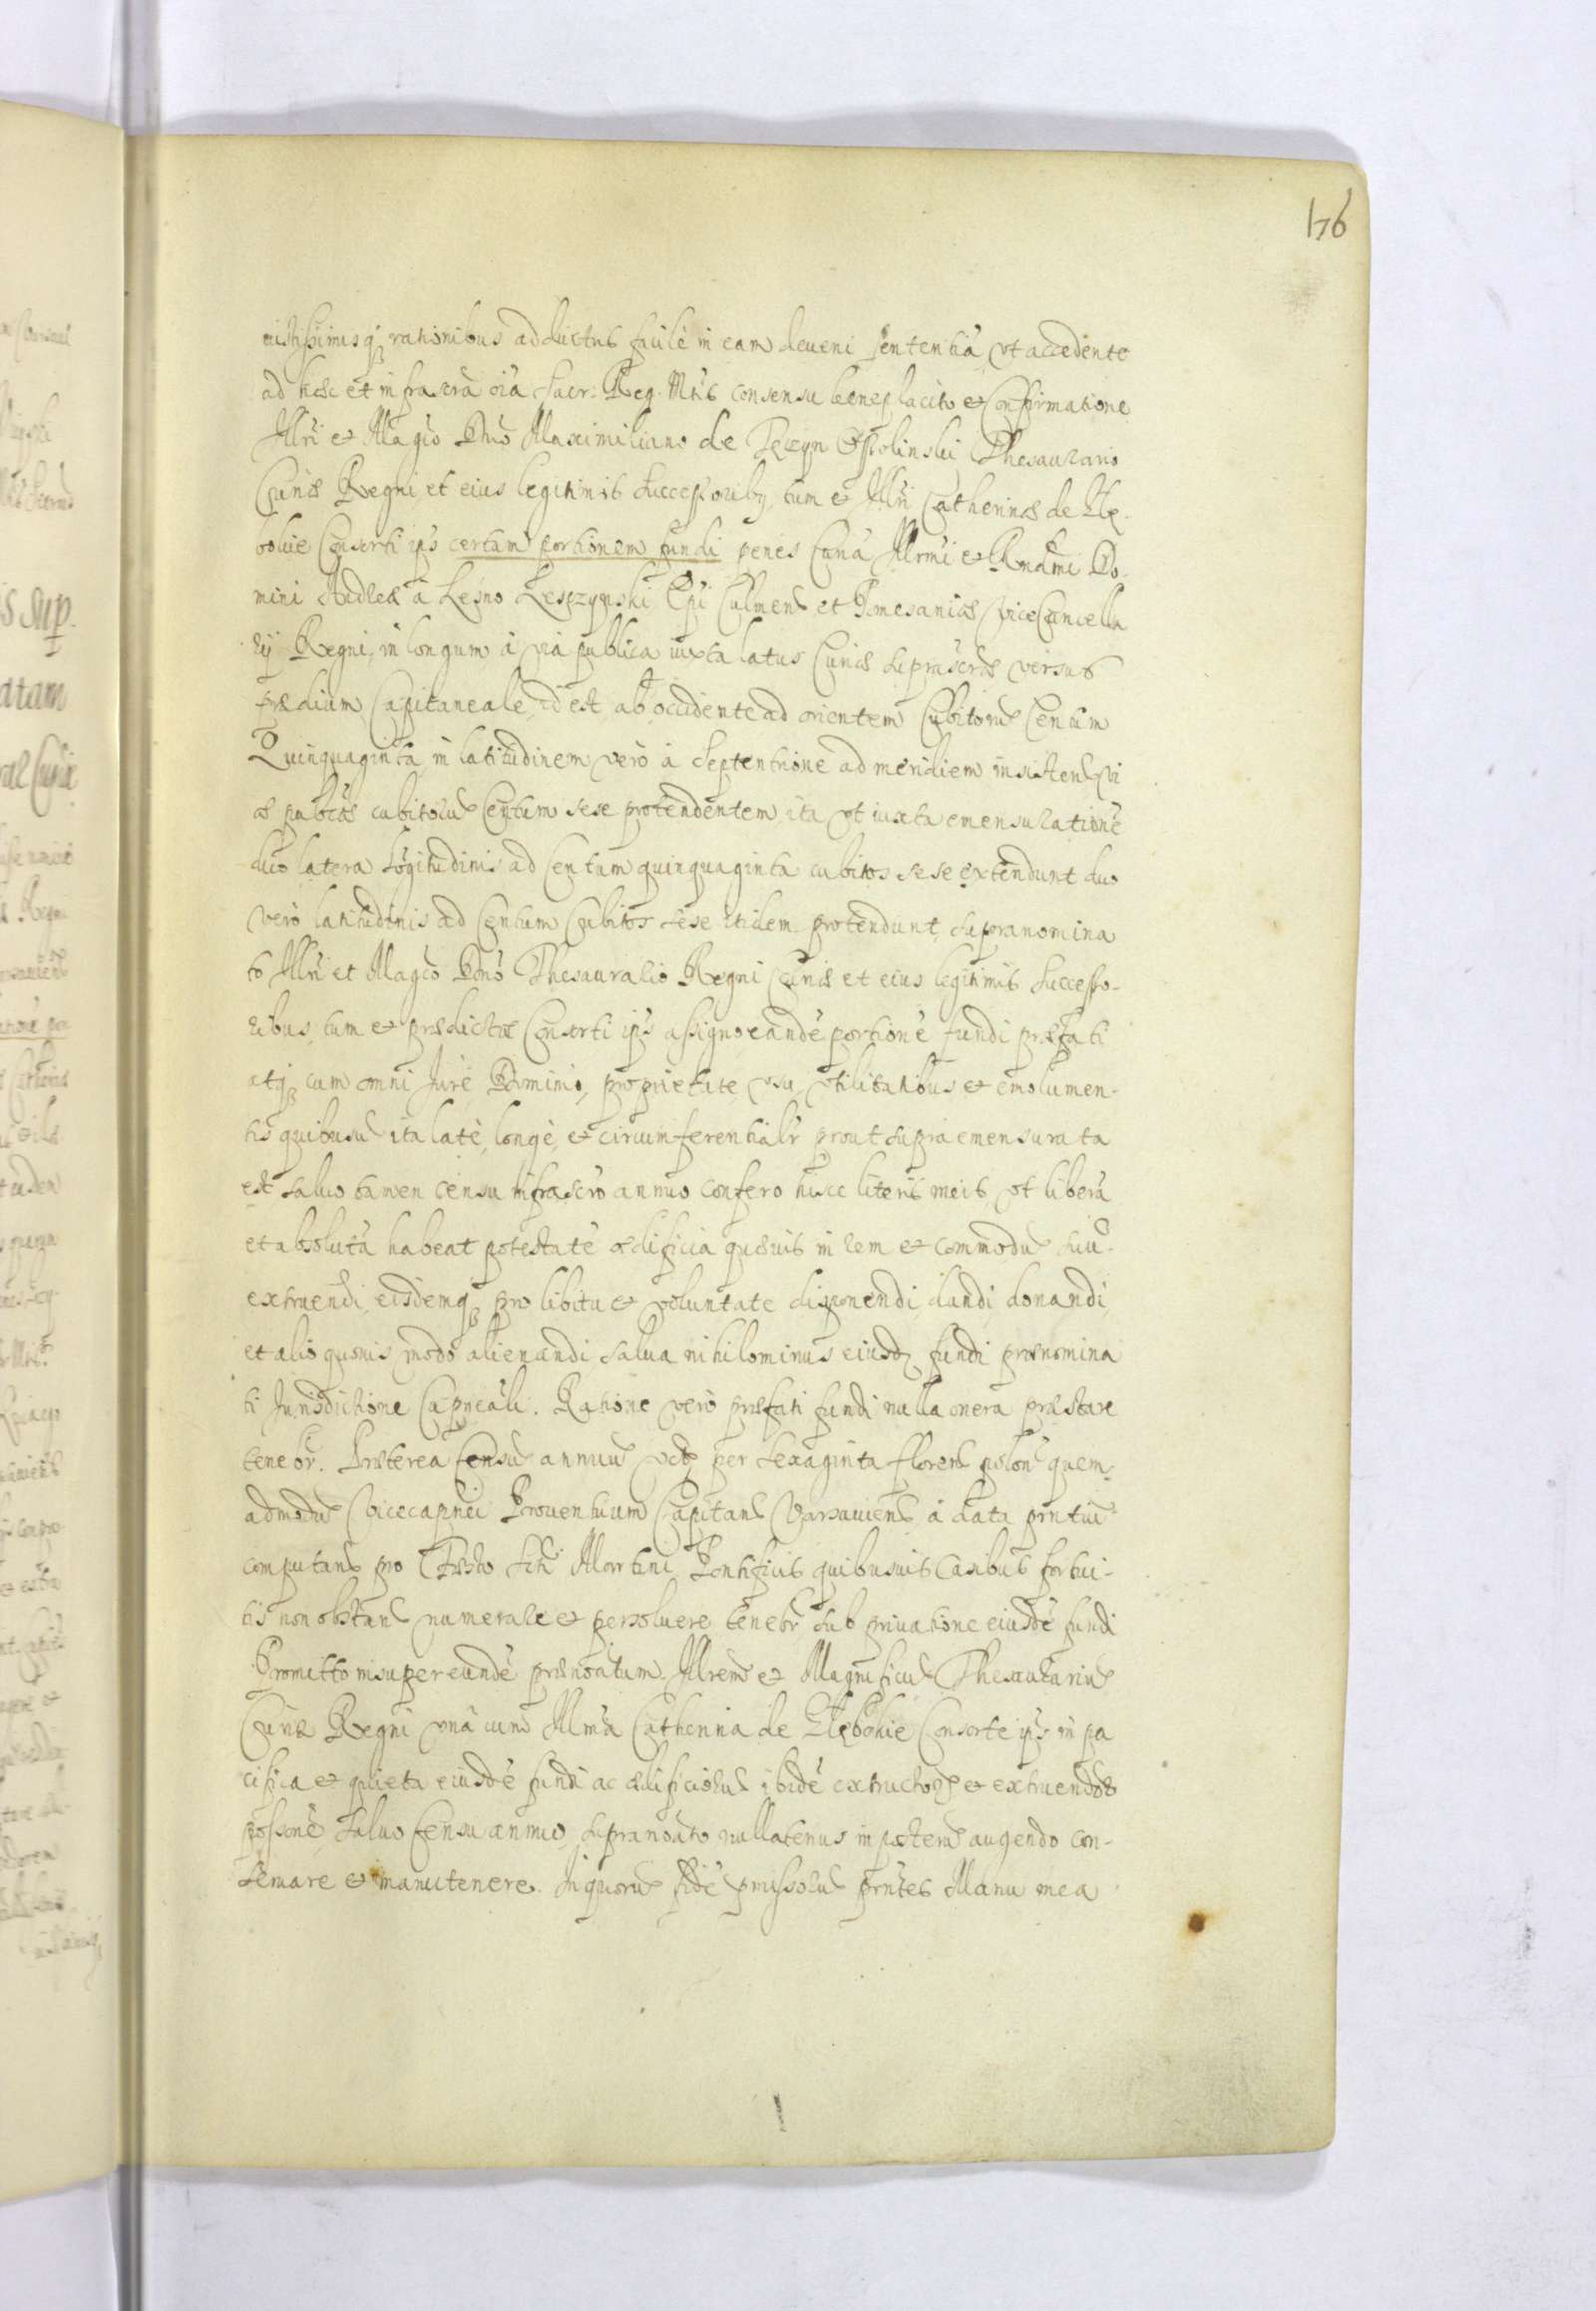 176
uistissimisq; rationibus adductus facile in eam deueni sententiã, vt accedente
ad hæc et infrascrã oiã Sacr. Reg. Mtis consensu beneplacito et Confirmatione
Illri et Magco Dno Maximiliano de Tęczyn Ossolinski Thesaurario
Curiæ Regni, et eius legitimis successoribq, tum et Illri Catherinæ de
Consorti ips certam portionem fundi penes Curiã Illrmi et Rndmi Do-
mini Andreæ a Lesno Leszczynski Epi Culmens et Pomesaniæ ViceCancella
rÿ Regni, in longum à via publica iuxta latus Curiæ suprascræ versus
prædium Capitaneale, id est ab occidente ad orientem Cubitorũ Centum
Quinquaginta, in latitudinem verò à Septentrione ad meridiem insistens vi
æ publcæ cubitorũ Centum sese protendentem ita vt iuxta emensurationẽ
duo latera lõgitudinis ad Centum quinquaginta cubitos sese extendunt duo
verò latitudinis ad Centum Cubitos sese itidem protendunt, supranomina
to Illri et Magco Dno Thesaurario Regni Curiæ et eius legitimis Successo-
ribus, tum et prædictæ Consorti ips assigno, eandẽ portionẽ fundi præfati
atq; cum omni Jure, Dominio, proprietate, vsu, vtilitatibus et emolumen-
tis quibusuis ita latè, longè, et circumferentialr prout supra emensurata
est saluo tamen censu infrascro annuo confero hisce literis meis, vt liberã
et absolutã habeat potestatẽ ædificia quæuis in rem et commodũ suũ
extruendi, eisdemq; pro libitu et voluntate disponendi, dandi, donandi,
et alio quouis modo alienandi, salua nihilominus eiusd fundi prænomina
ti Jurisdictione Capneali. Ratione verò præfati fundi nulla onera præstare
tenebr. Præterea Censũ annuũ vdt per sexaginta florens polon quem-
admodũ Vicecapnei Prouentuum Capitans Varsauiens à data prntiũ
computans pro Festo Sti Martini Pontificis quibusuis Casibus fortui-
tis non obstans numerare et persoluere tenebr sub priuatione eiusdẽ fundi
Promitto insuper eundẽ prænoatum Illrem et Magnificũ Thesaurariũ
Curiæ Regni vnà cum Illmã Catherina de Consorte ips in pa
cifica et quieta eiusdẽ fundi ac ædificiorũ ibidẽ extructorũ et extruendor
possonẽ saluo Censu annuo, supranoato nullatenus in posterũ augendo con-
seruare et manutenere. In quorũ fidẽ pmissorũ prntes Manu mea